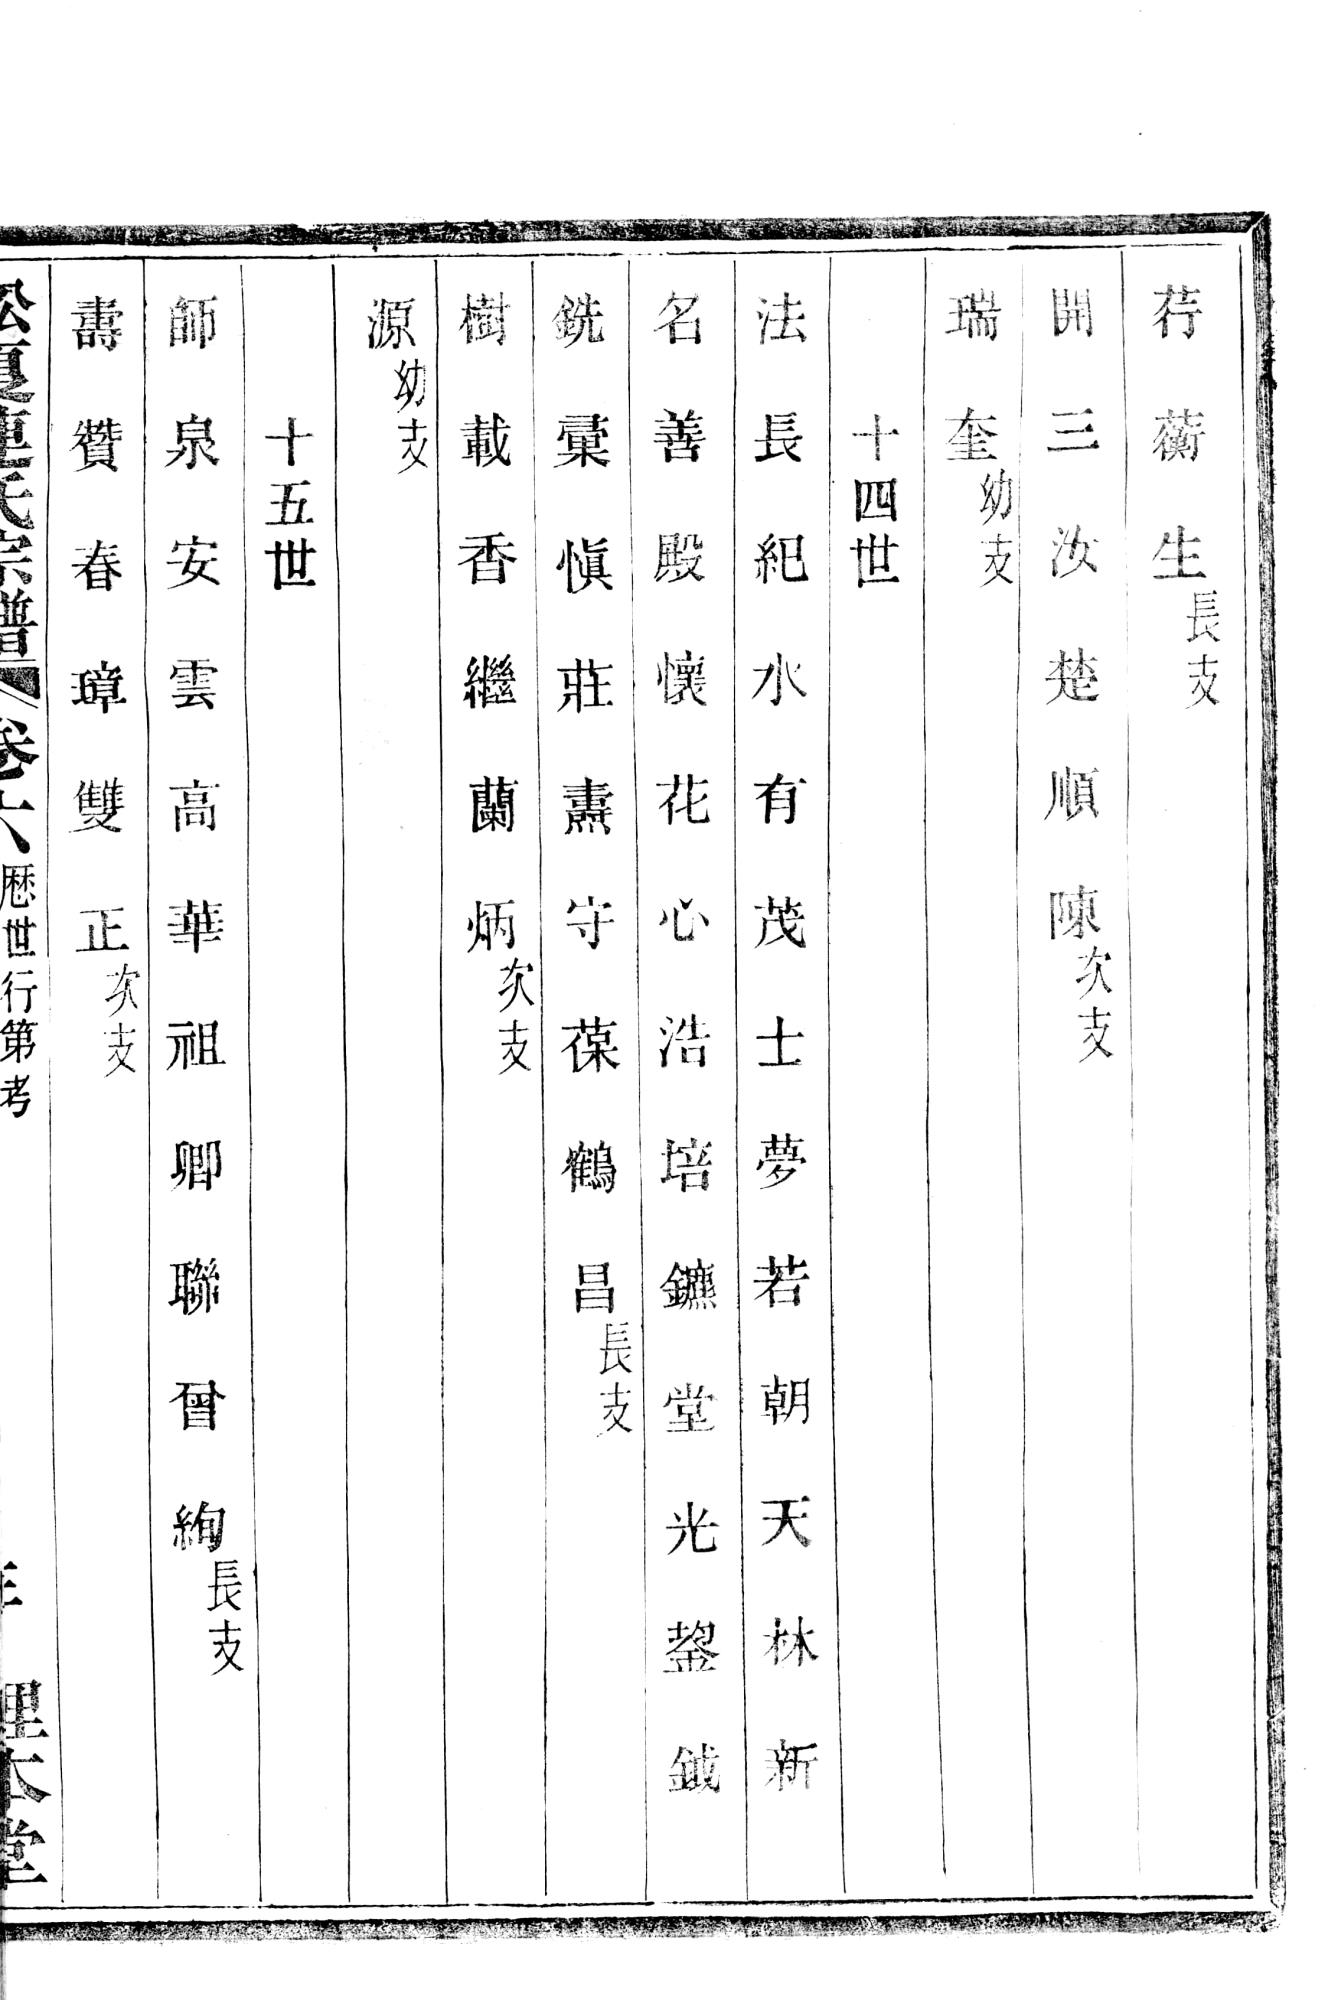 荇蘅生長支
開三汝楚順陳次支
瑞奎幼支
十四世
法長紀水有茂士夢若朝天林新
名善殿懷花心浩培鑣堂光鋆鉞
銑彙愼莊燾守葆鶴昌長支
樹載香繼蘭炳次支
源幼支
十五世
師泉安雲高華祖卿聯曾絢長支
壽贊春璋雙正次支
松夏連氏宗譜卷六歷世行第考 理本堂